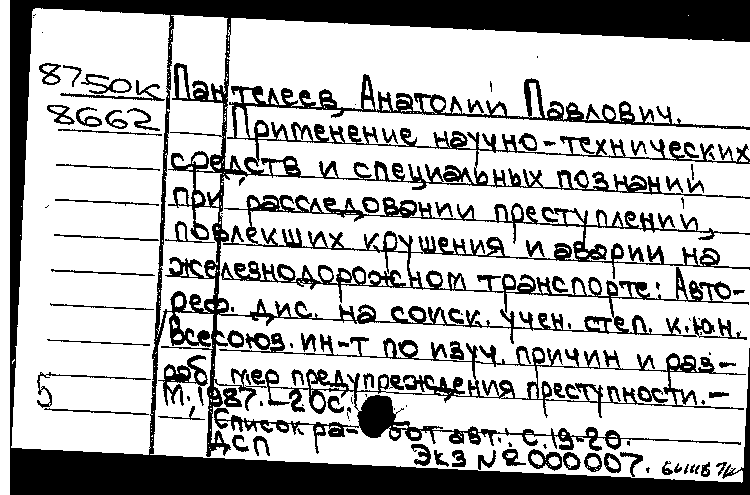 8750к Пантелеев, Анатолий Павлович.
8662 Применение научно-технических
средств и специальных познаний
при расследовании преступлений,
повлекших крушения и аварии на
железнодорожном транспорте: Авто-
реф. дис. на соиск. учен. степ. к.юн.
/Всесоюз. ин-т по изуч. причин и раз-
раб. мер предупреждения преступности. –
5 М., 1987. – 20с.
Список ра- бот авт.: с.19-20.
ДСП Экз № 000007.